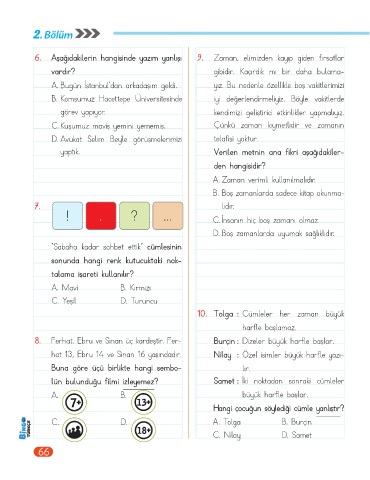 2. Bölüm
6. Aşağıdakilerin hangisinde yazım yanlışı
vardır?
A. Bugün İstanbul'dan arkadaşım geldi.
B. Komşumuz Hacettepe Üniversitesinde
görev yapıyor.
C. Kuşumuz maviş yemini yememiş.
D. Avukat Selim Bey'le görüşmelerimizi
yaptık.
7.
! . ? ...
"Sabaha kadar sohbet ettik" cümlesinin
sonunda hangi renk kutucuktaki nok-
talama işareti kullanılır?
A. Mavi B. Kırmızı
C. Yeşil D. Turuncu
8. Ferhat, Ebru ve Sinan üç kardeştir. Fer-
hat 13, Ebru 14 ve Sinan 16 yaşındadır.
Buna göre üçü birlikte hangi sembo-
lün bulunduğu filmi izleyemez?
A. 7+ B. 13+
C. D. 18+
9. Zaman, elimizden kayıp giden fırsatlar
gibidir. Kaçırdık mı bir daha bulama-
yız. Bu nedenle özellikle boş vakitlerimizi
iyi değerlendirmeliyiz. Böyle vakitlerde
kendimizi geliştirici etkinlikler yapmalıyız.
Çünkü zaman kıymetlidir ve zamanın
telafisi yoktur.
Verilen metnin ana fikri aşağıdakiler-
den hangisidir?
A. Zaman verimli kullanılmalıdır.
B. Boş zamanlarda sadece kitap okunma-
lıdır.
C. İnsanın hiç boş zamanı olmaz.
D. Boş zamanlarda uyumak sağlıklıdır.
10. Tolga : Cümleler her zaman büyük
harfle başlamaz.
Burçin : Dizeler büyük harfle başlar.
Nilay : Özel isimler büyük harfle yazı-
lır.
Samet : İki noktadan sonraki cümleler
büyük harfle başlar.
Hangi çocuğun söylediği cümle yanlıştır?
A. Tolga B. Burçin
C. Nilay D. Samet
BinGO
TÜRKÇE
66